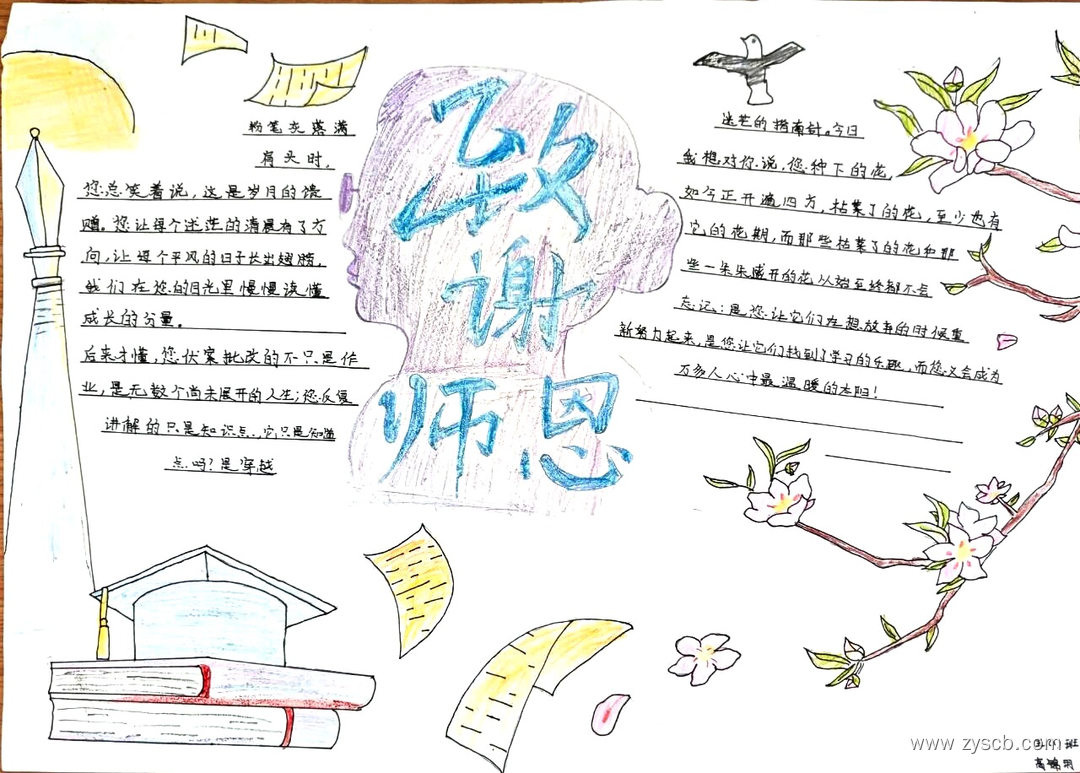 致谢
师恩
粉笔灰落满
肩头时，
您总笑着说，这是岁月的馈
赠。您让每个迷茫的清晨有了方
向，让每个平凡的日子长出翅膀，
我们在您的目光里慢慢读懂
成长的分量。
后来才懂，您伏案批改的不只是作
业，是无数个尚未展开的人生；您反复
讲解的只是知识点，它只是知识
点吗？是穿越
迷茫的指南针。今日
我想对你说，您种下的花，
如今正开遍四方，枯萎了的花，至少也有
它的花期，而那些枯萎了的花和那
些一朵朵盛开的花从始至终都不会
忘记：是您让它们在想放弃的时候重
新努力起来，是您让它们找到了学习的乐趣，而您又会成为
万多人心中最温暖的太阳！
www.zyscb.com
班